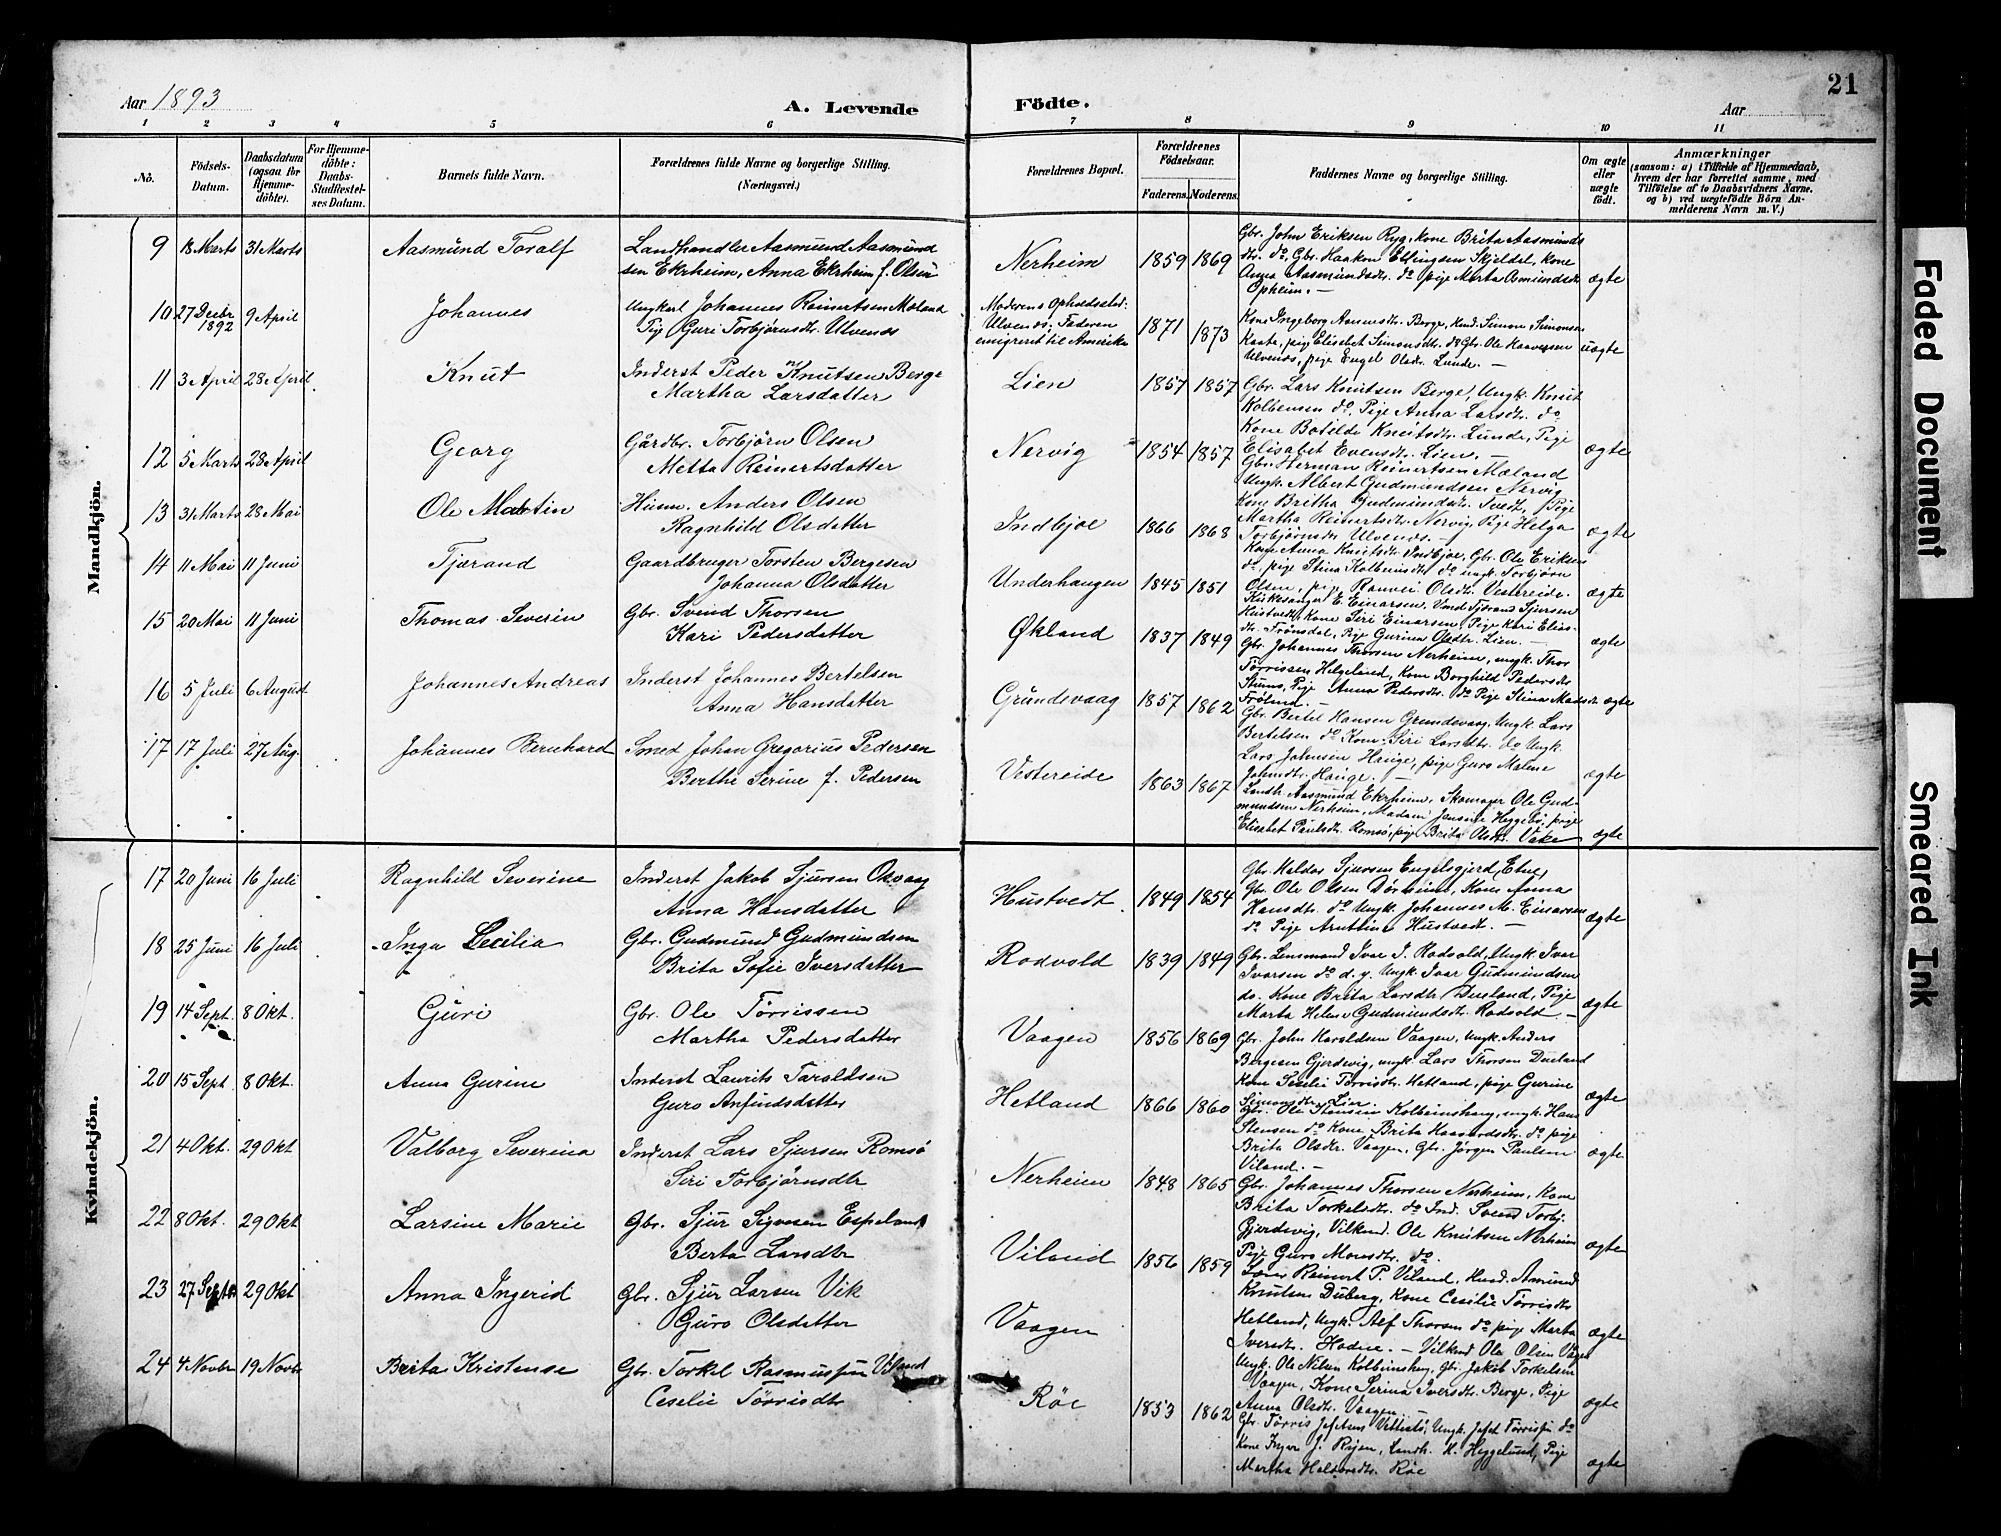 21
Aar 1893
A. Levende
Födte.
Aar
1 2 3 4 5 6 7 8 9 10 11
No.
Födsels-Datum.
Daabsdatum (ogsaa for Hjemmedöbte).
For Hjemmedöbte: Daabs-Stadfæstelses Datum.
Barnets fulde Navn.
Forældrenes fulde Navne og borgerlige Stilling. (Næringsvei.)
Forældrenes Bopæl.
Forældrenes Födselsaar.
Faderens. Moderens.
Faddernes Navne og borgerlige Stilling.
Om ægte eller uægte födt.
Anmærkninger
(saasom: a) i Tilfælde af Hjemmedaab,
hvem der har forrettet samme, med
Tilföielse af to Daabsvidners Navne.
og b) ved uægtefödte Börn An-
melderens Navn m. V.)
Mandkjön.
9 18 Marts 31 Marts Aasmund Toralf Landhandler Aasmund Aasmund
sen Ekrheim, Anna Ekrheim f. Olsen Nerheim 1859 1869
Gbr. John Eriksen Ryg, Kone Brita Aasmunds
dtr. do, Gbr. Haakon Ellingsen Skjeldal, Kone
Anna Aasmundsdtr. do pige Marta Asmundsdtr
Opheim. — ægte
10 27 Decbr 1892 9 April Johannes Ungkarl Johannes Reinertsen Mæland
Pig Guri Torbjørnsdtr. Ulvenos
Moderens Opholdssted:
Ulvenos, Faderen
emigreret til Amerika 1871 1873
Kone Ingeborg Aanensdtr. Berge, Simon Simonsen
Kaata, pige Elisabet Simonsdtr. do Gbr. Ole Haavorsen
Ulvenos, pige Engel Olsdtr. Lunde. — uægte
11 3 April 28 April Knut Inderst Peder Knutsen Berge
Martha Larsdatter Lien 1857 1857
Gbr. Lars Knutsen Berge, Ungk. Knut
Kolbensen do, Pige Anna Larsdtr. do
Kone Botilde Knutsdtr. Lunde, Pige
Elisabet Evensdtr. Lien. — ægte
12 5 Marts 28 April Georg Gårdbr. Torbjörn Olsen
Metta Reinertsdatter Nervig 1854 1857
Gbr. Herman Reinertsen Mæland
Ungk. Albert Gudmundsen Nervig
Kone Britha Gudmundsdtr. Tvedt, Pige
Martha Reinertsdtr. Nervig, Pige Helga
Torbjørnsdtr Ulvenos. — ægte
13 31 Marts 28 Mai Ole Martin Husm. Anders Olsen
Ragnhild Olsdatter Indbjoe 1866 1868
Kone Anna Knutsdtr. Indbjoe, Gbr. Ole Eriksen
do, pige Stina Kolbeinsdtr. do ungk. Torbjörn
Olsen, pige Ranvei Olsdtr. Vestereide.
14 11 Mai 11 Juni Tjærand Gaardbruger Torsten Bergesen
Johanna Olsdatter Underhaugen 1845 1851
Kirkesanger E. Einarsen, Tjerand Sjursen
Hustvedt, Kone Siri Einarsen, Pige Kari Elias-
dtr. Frönsdal, Pige Gurina Olsdtr. Lien. — ægte
15 20 Mai 11 Juni Thomas Severin Gbr. Svend Thorsen
Kari Pedersdatter Økland 1837 1849
Gbr. Johannes Thorsen Nerheim, ungk. Thor
Törrissen Helgeland, Kone Borghild Pedersdtr
Stums, Pige Anna Pedersdtr. do Pige Stina Madsdtr
Frölund. ægte
16 5 Juli 6 August Johannes Andreas Inderst Johannes Bertelsen
Anna Hansdatter Grundevaag 1857 1862
Gbr. Bertel Hansen Grundevaag, Ungk. Lars
Bertelsen do Kone Siri Larsdtr. do Ungk.
Lars Johnsen Hauge, pige Guro Malene
Johnsdtr. Hauge. — ægte
17 17 Juli 27 Aug. Johannes Bernhard Smed Johan Gregorius Pedersen
Berthe Serine f. Pedersen Vestereide 1863 1867
Landh. Aasmund Ekrheim, Skomager Ole Gud-
mundsen Nerheim, Madam Jensine Heggebö, pige
Elisabet Paulsdtr. Romsö, pige Brita Olsdtr. Vake ægte
Kvindekjön.
17 20 Juni 16 Juli Ragnhild Severine Inderst Jakob Sjursen Osvaag
Anna Hansdatter Hustvedt. 1849 1854
Gbr. Haldor Sjursen Engelsgjerd, Etne,
Gbr. Ole Olsen Dörheim, Kone Anna
Hansdtr. do Ungk. Johannes M. Einarsen
do Pige Hustvedt. — ægte
18 25 Juni 16 Juli Inga Cecilia Gbr. Gudmund Gudmundsen
Brita Sofie Iversdatter Rodvold 1839 1849
Gbr. Lensmand Ivar I. Rodvold, Ungk. Ivar
Ivarsen do d. y. Ungk. Ivar Gudmundsen
do. Kone Brita Larsdtr. Dueland, Pige
Marta Helene Gudmundsdtr. Rodvold — ægte
19 14 Sept. 8 Okt. Guri Gbr. Ole Törrissen
Martha Pedersdatter Vaagen 1856 1869
Gbr. John Haraldsen Vaagen, ungk. Anders
Bergesen Gjerdevig, ungk. Lars Thorsen Dueland
Kone Seselie Törrisdtr. Hetland, pige Gurine
Simonsdtr. Lien. ægte
20 15 Sept. 8 Okt. Anna Gurine Inderst Laurits Taroldsen
Guro Anfindsdatter Hetland 1866 1860
Gbr. Ole Stensen Kolbeinshaug, ungk. Hans
Stensen do Kone Brita Haavardsdtr. do pige
Brita Olsdtr. Vaagen, Gbr. Jörgen Paulsen
Viland. — ægte
21 4 Okt. 29 Okt Valborg Severina Inderst Lars Sjursen Romsö
Siri Torbjörnsdtr Nerheim 1848 1865
Gbr. Johannes Thorsen Nerheim, Kone
Brita Torkelsdtr. do Ind. Svend Torbj.
Gjerdevig, Vilkend. Ole Knutsen Nerheim
Pige Guro Monsdtr. do. ægte
22 8 Okt. 29 Okt Larsine Marie Gbr. Sjur Sigvesen Espeland
Berta Larsdtr Viland 1856 1859
Reinert P. Viland, Amund
Knutsen Duberg, Kone Ceselie Törrisdtr
Hetland, Ungk. Alf Thorsen do pige Marta
Iversdtr. Hodne. — ægte
23 27 Septr 29 Okt Anna Ingerid Gbr. Sjur Larsen Vik
Guro Olsdatter Vaagen
Vilkend Ole Olsen Vågen
Ungk. Ole Nilsen Kolbeinshaug, Gbr. Jakob Torkelsen
Vaagen, Kone Serina Iversdtr. Berge, Pige
Anna Olsdtr. Vaagen. — ægte
24 4 Novbr 19 Novbr Berita Kristense Gbr. Torkel Rasmussen Viland
Ceselie Törrisdtr Röe 1853 1862
Gbr. Törris Jafetsen Vettestö, Ungk. Jafet Törrissen do
Kone Inger J. Rygen, Landh. K. Heggelund, Pige
Martha Halvorsdtr. Röe ægte
Faded Document
Smeared Ink